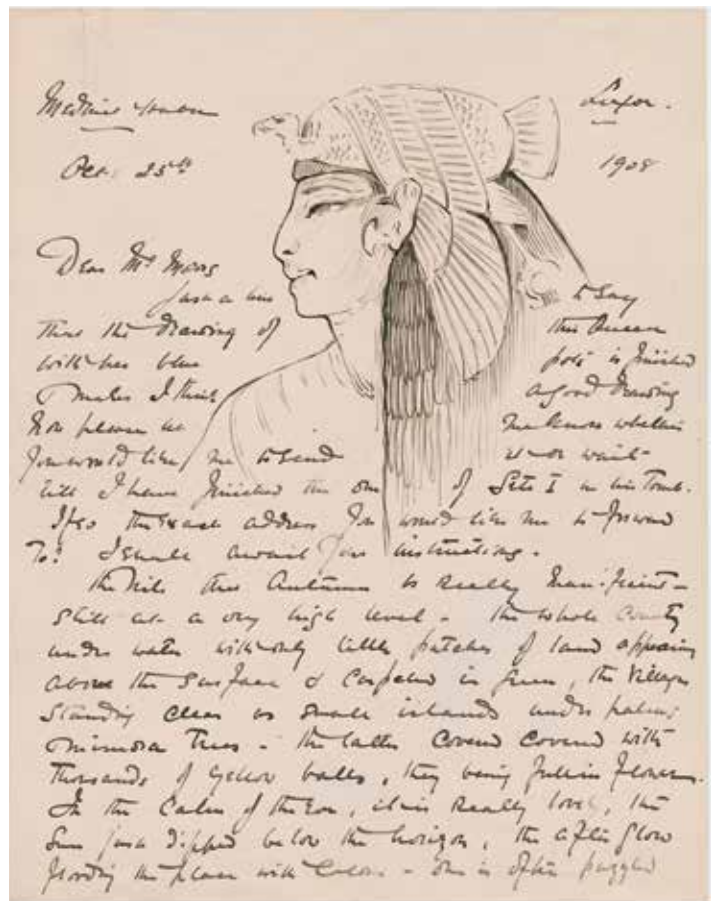 Medinet Habu Luxor.
Oct. 25th 1908
Dear Mrs
Just a line to say
that the drawing of the Queen
with her blue is finished
& makes I think a good drawing
Now please let me know whether
you would like me to send it or wait
till I have finished the one of Seti I in his Tomb.
If so the exact address you would like me to forward
to? I shall await your instructions.
The Nile this Autumn is really magnificent -
still at a very high level - the whole country
under water with only little patches of land appearing
above the surface & carpeted in green, the villages
standing clear as small islands under palm &
mimosa trees - the latter covered covered with
thousands of yellow balls, they being full in flower.
In the calm of the Eve, it is really lovely, the
Sun just dipped below the horizon, the after glow
flooding the place with colour - one is often puzzled